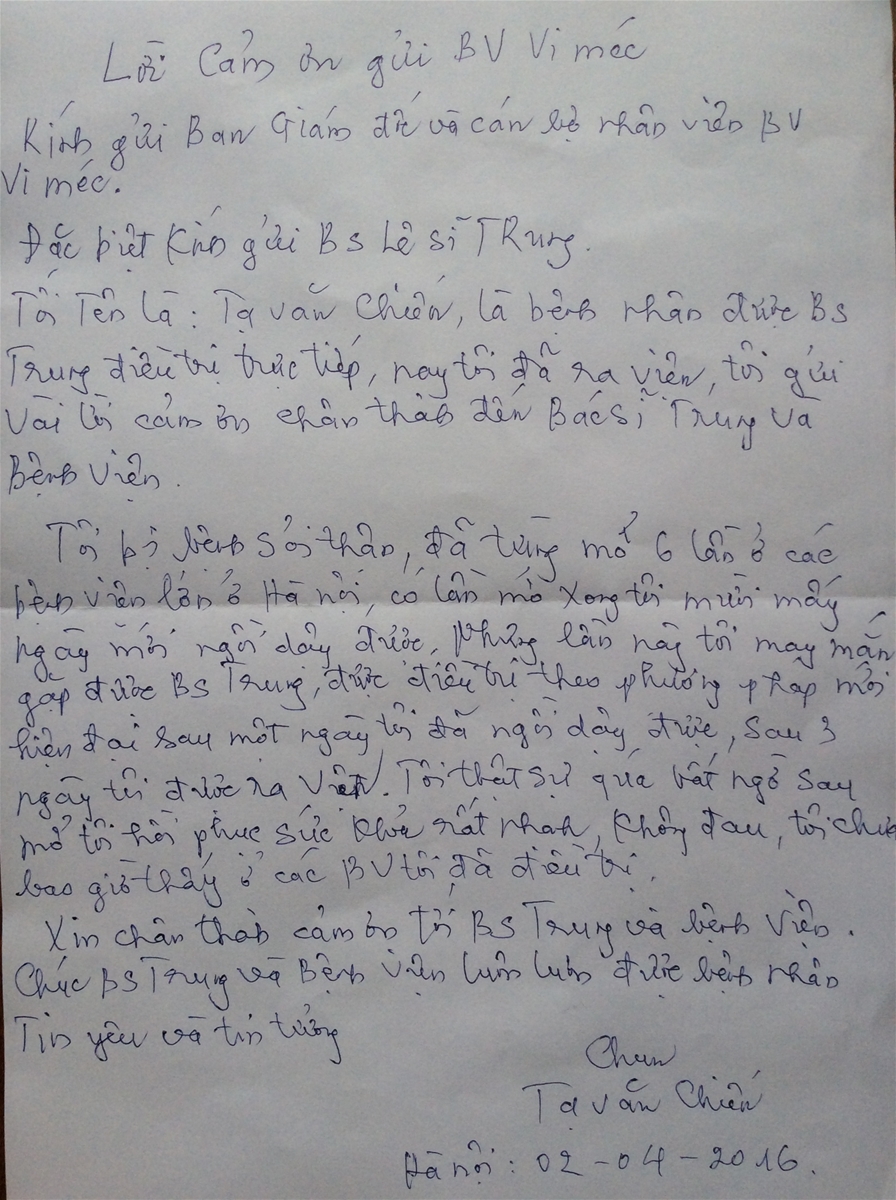 Lời cảm ơn gửi BV Vi méc
Kính gửi Ban Giám đốc và cán bộ nhân viên BV
Vi méc.
Đặc biệt Kính gửi BS Lê Sĩ TRung.
Tôi Tên là : Tạ văn Chiến, là bệnh nhân được BS
Trung điều trị trực tiếp, nay tôi đã ra viện, tôi gửi
vài lời cảm ơn chân thành đến Bác sĩ Trung và
Bệnh viện.
Tôi bị bệnh sỏi thận, đã từng mổ 6 lần ở các
bệnh viện lớn ở Hà nội, có lần mổ xong tôi mười mấy
ngày mới ngồi dậy được, Nhưng lần này tôi may mắn
gặp được BS Trung, được điều trị theo phương pháp mới
hiện đại sau một ngày tôi đã ngồi dậy được, sau 3
ngày tôi được ra viện. Tôi thật sự quá bất ngờ sau
mổ tôi hồi phục sức khỏe rất nhanh, không đau, tôi chưa
bao giờ thấy ở các BV tôi đã điều trị.
Xin chân thành cảm ơn tới BS Trung và bệnh viện.
Chúc BS Trung và Bệnh viện luôn luôn được bệnh nhân
Tin yêu và tin tưởng
Tạ văn Chiến
Hà nội : 02-04-2016.